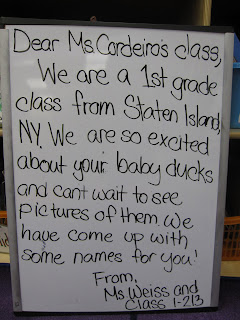 Dear Ms Cordeiro's class,
We are a 1st grade
class from Staten Island,
NY. We are so excited
about your baby ducks
and cant wait to see
pictures of them. We
have come up with
some names for you!
From,
Ms Weiss and
Class 1-213